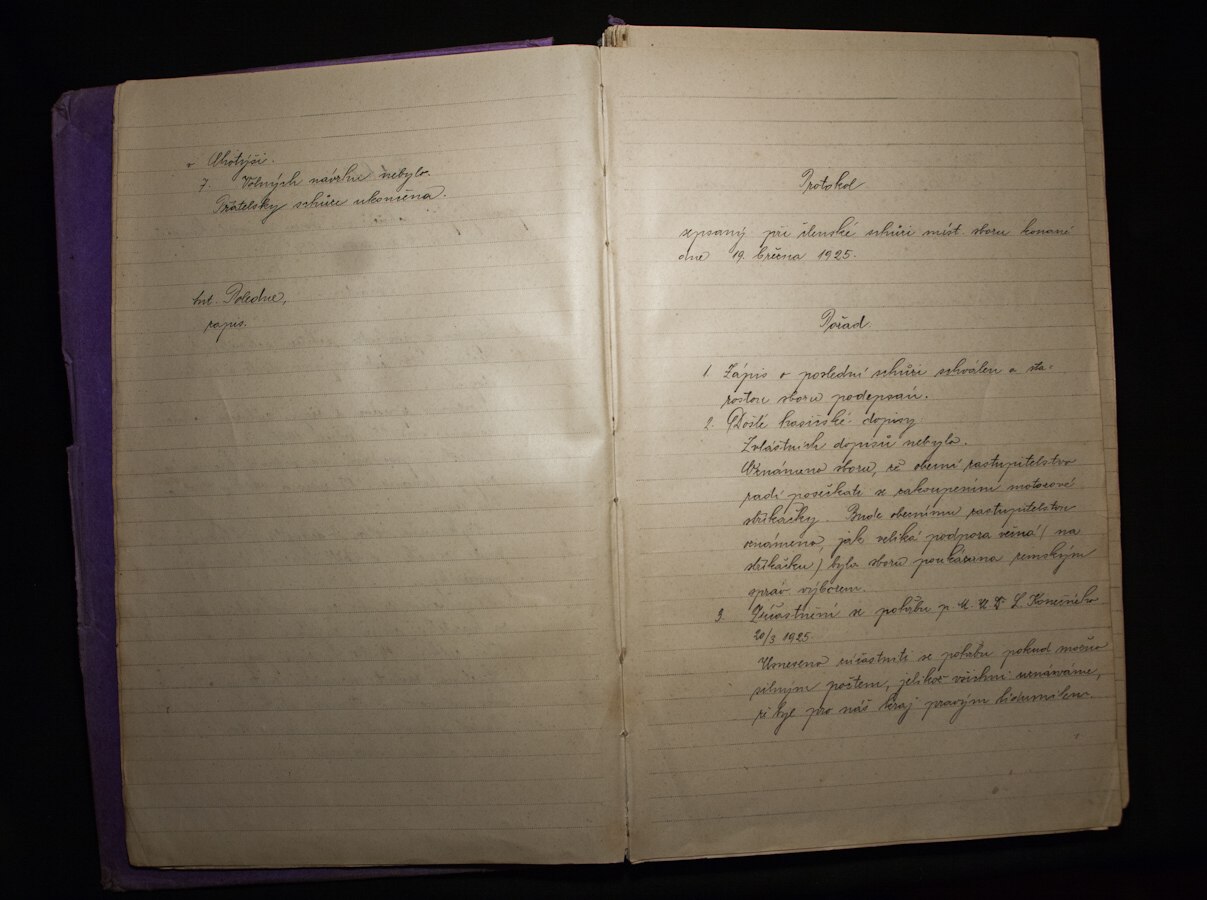 v Chotýši.
7. Volných návrhu nebylo.
Přátelsky schůze ukončena.
Ant. Poledne,
zapis.
Protokol
sepsaný při členské schůzi míst. sboru konané
dne 19. března 1925.
Pořad.
1. Zápis o poslední schůzi schválen a sta-
rostou sboru podepsán.
2. Došlé hasičské dopisy.
Zvláštních dopisů nebylo.
Oznámeno sboru, že obecní zastupitelstvo
radí posečkati se zakoupením motorové
stříkačky. Bude obecnímu zastupitelstvu
oznámeno, jak veliká podpora (na
stříkačku) byla sboru poukázána zemským
správ. výborem.
3. Zúčastnění se pohřbu p. M. U. Dr L. Konečného
20/3 1925.
Usneseno súčastniti se pohřbu pokud možno
silným počtem, jelikož všichni uznáváme,
že byl pro náš kraj pravým lidumilem.